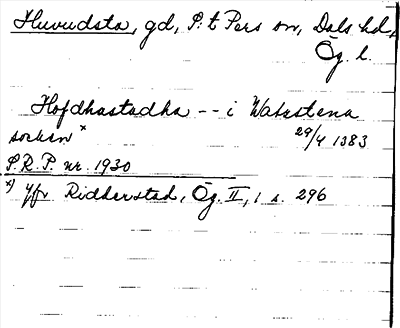 Huvudsta, gd, S:t Pers sn, Dals hd,
Ög. l.
Hofdhastadha -- i Watzstena
socken x 29/4 1383
S.R.P. nr. 1930
x) Jfr Ridderstad, Ög. II, 1 s. 296